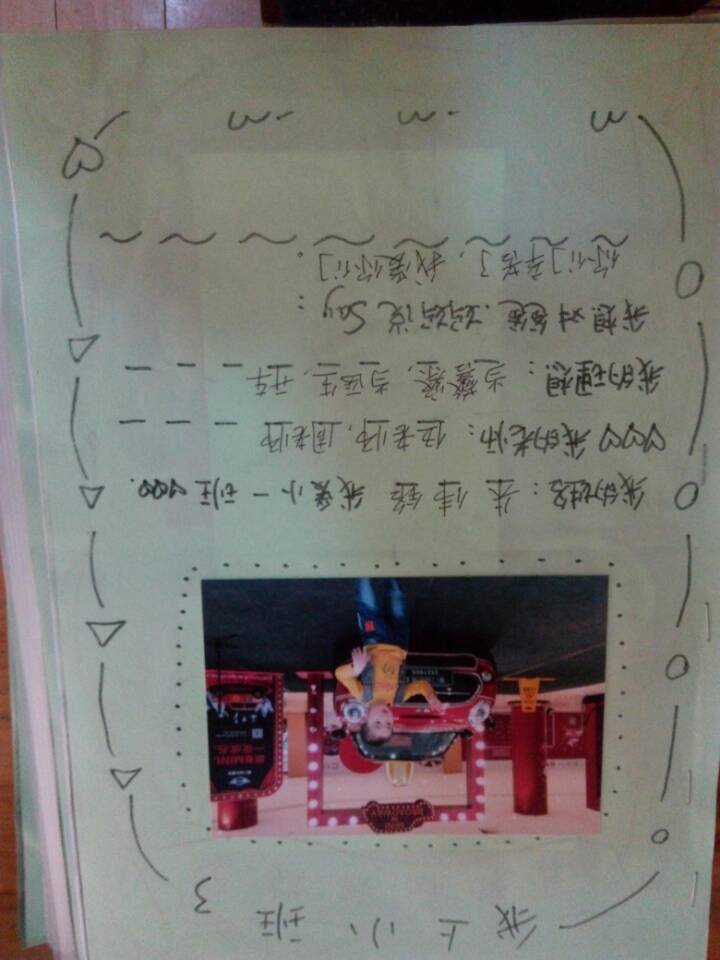 我上小班3
BROADWAY
我的姓名：朱俸铭 我爱小一班
我的老师：伍老师，周老师
我的理想：当警察，当医生，开车
我想对爸爸.妈妈说Say：
你们辛苦了，我爱你们。